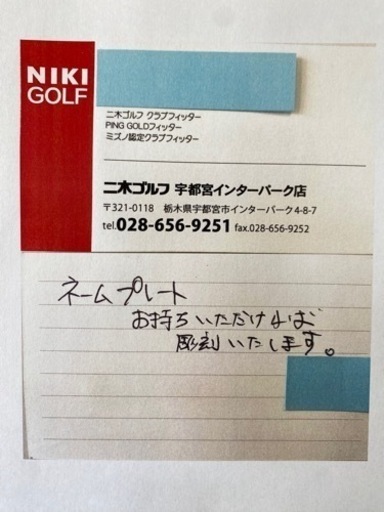 NIKI
GOLF
二木ゴルフ クラブフィッター
PING GOLDフィッター
ミズノ認定クラブフィッター
二木ゴルフ 宇都宮インターパーク店
〒321-0118 栃木県宇都宮市インターパーク4-8-7
tel.028-656-9251 fax.028-656-9252
ネームプレート
お持ちいただければ
彫刻いたします。